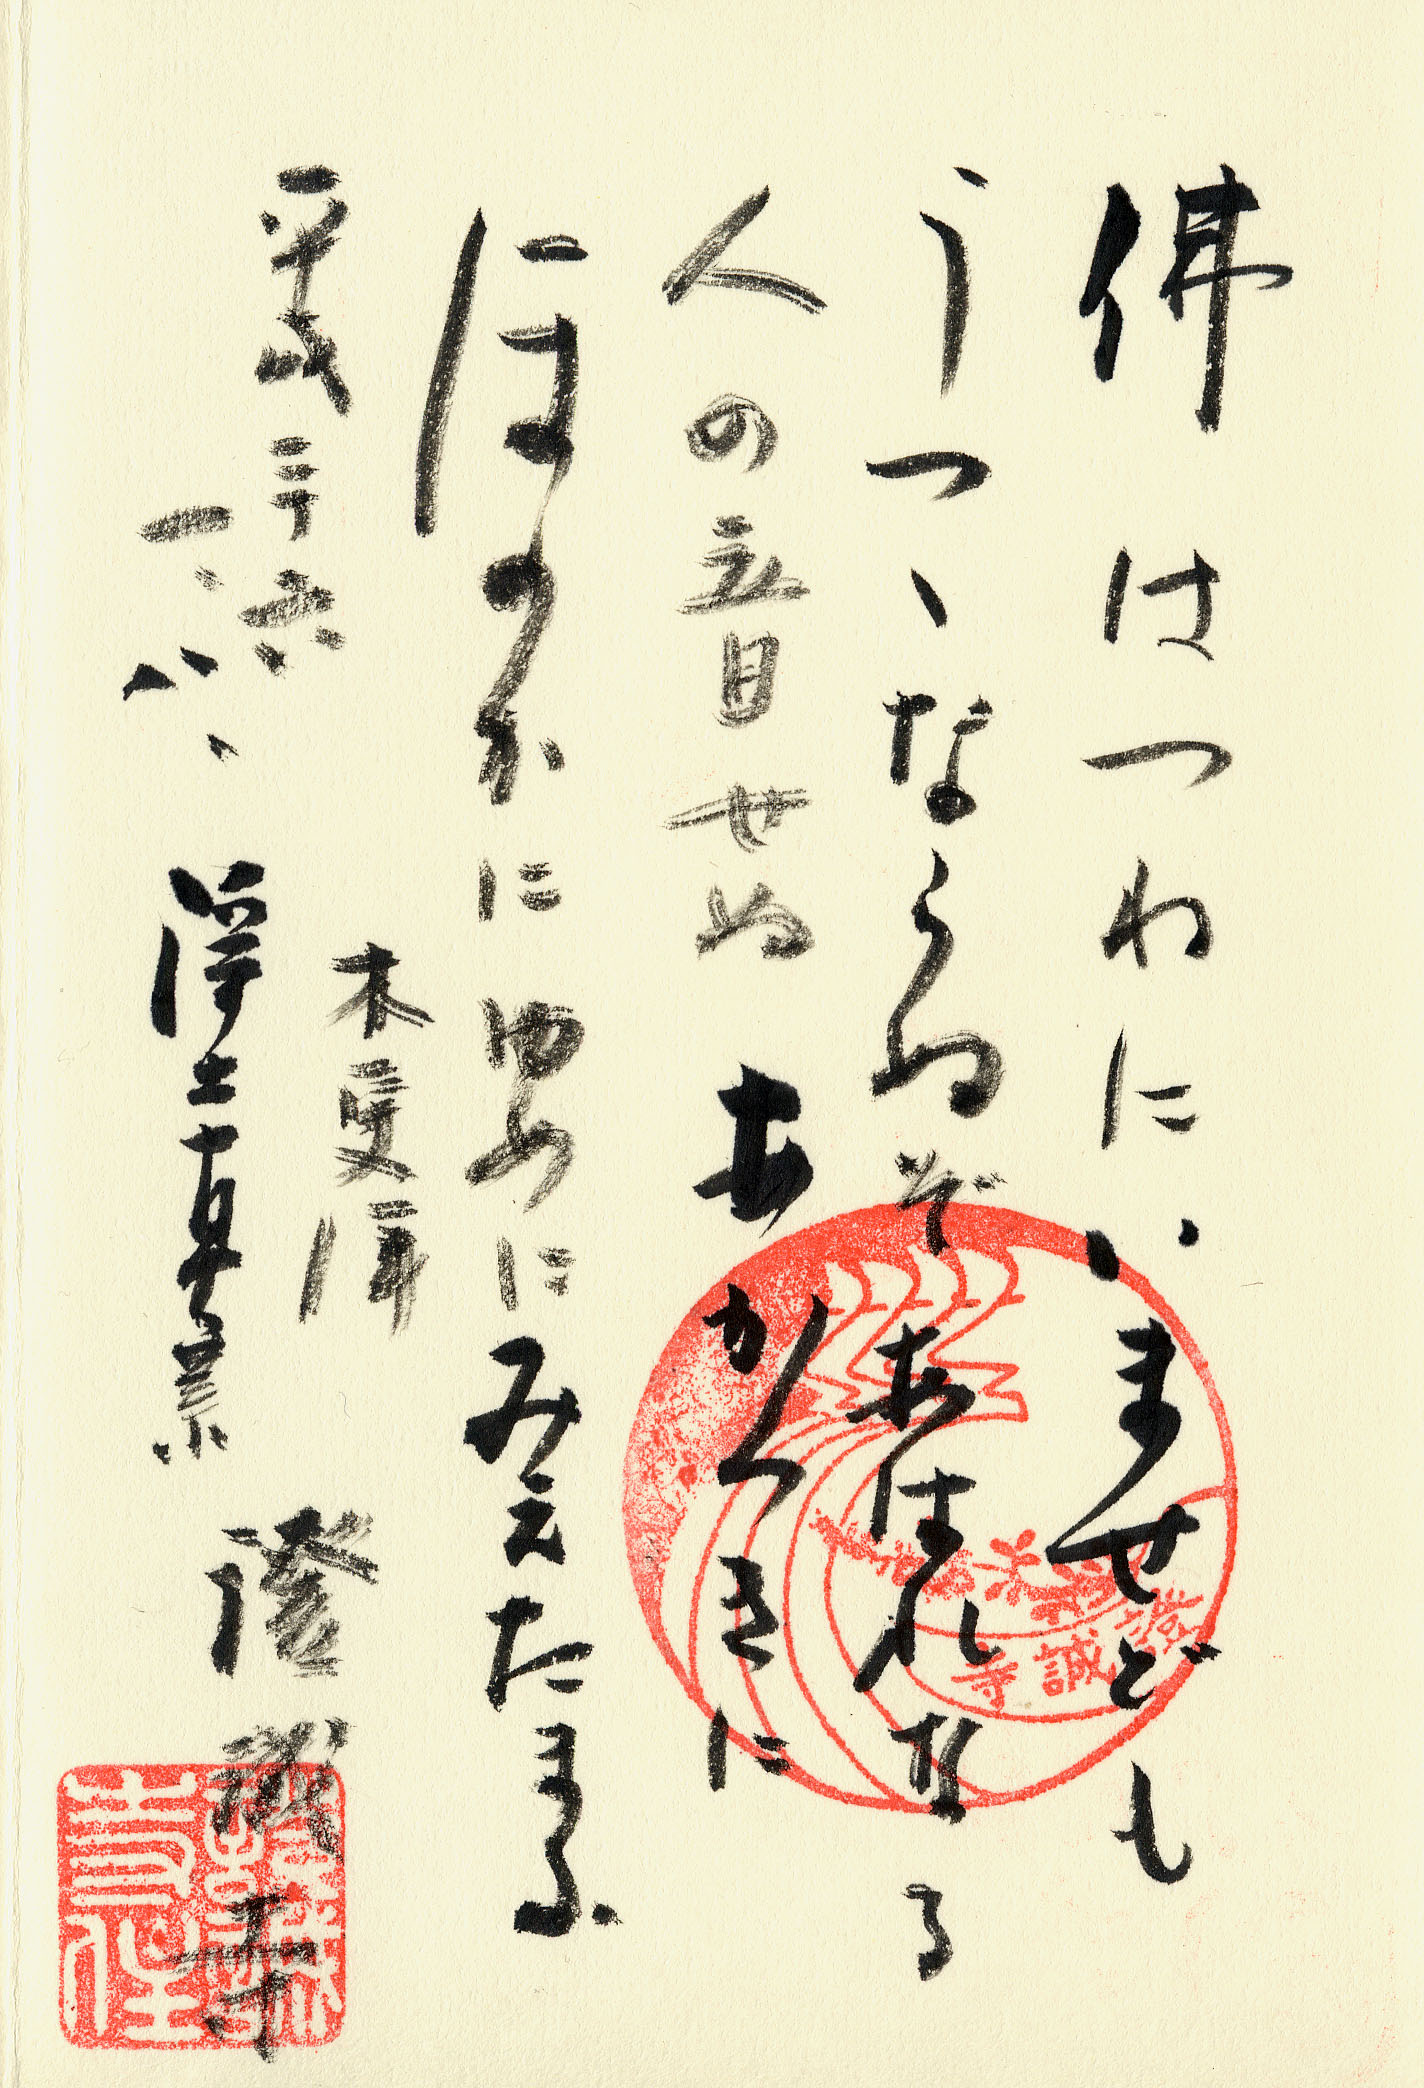 佛はつねにいませども
うつゝならぬぞあはれなる
人の音せぬあかつきに
ほのかにゆめにみえたまふ
平成二十六
一、八、
木更津
浄土真宗
證誠寺
證誠寺
證誠寺住